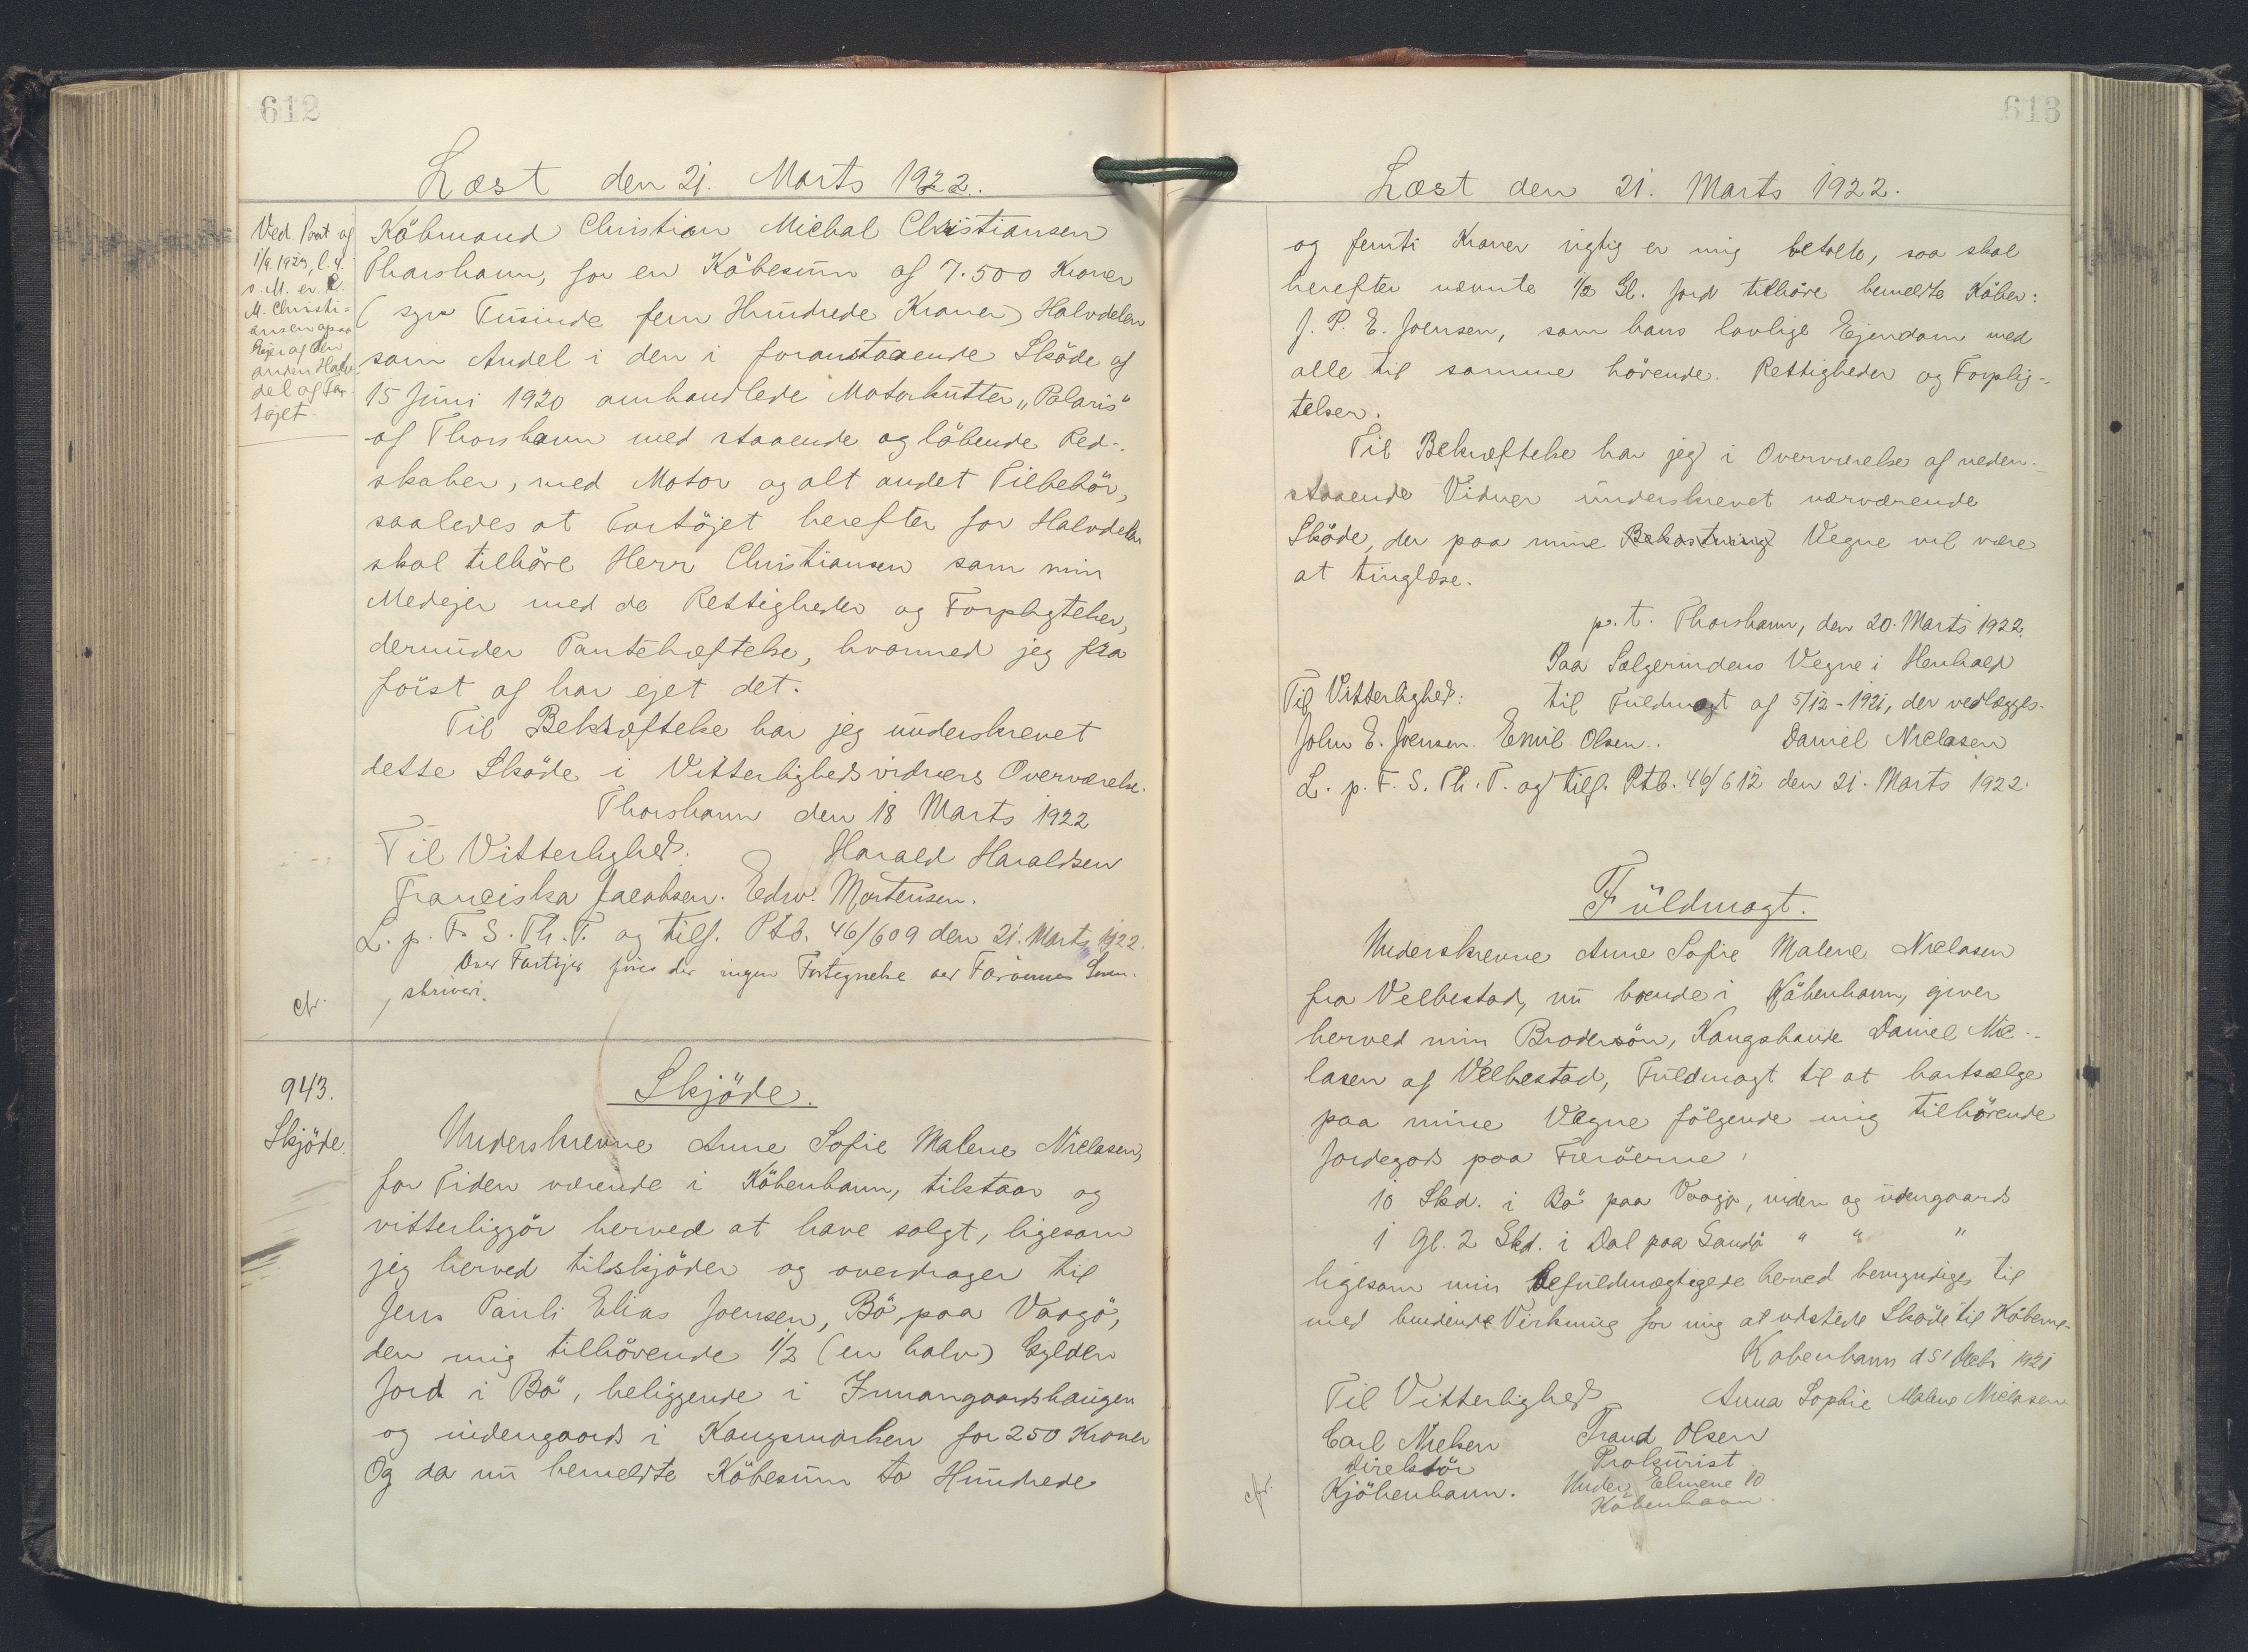 612
Læst den 21. Marts 1922.
Ved. Prat af
1/9. 1923, l. 4.
s. M. er C.
M. Christi-
ansen ogsaa
Ejer af den
anden Halv-
del af Far-
töjet.
Köbmand Christian Michal Christiansen
Thorshavn, for en Köbesum af 7.500 Kroner
(syv Tusinde fem Hundrede Kroner) Halvdelen
som Andel i den i foranstaaende Sköde af
15 Juni 1920 omhandlede Motorkutter „Polaris"
af Thorshavn med staaende og löbende Red-
skaber, med Motor og alt andet Tilbehör,
saaledes at Fartöjet herefter for Halvdelen
skal tilhöre Herr Christiansen som min
Medejer med de Rettigheder og Forpligtelser,
derunder Pantehæftelse, hvormed jeg fra
först af har ejet det.
Til Bekræftelse har jeg underskrevet
dette Sköde i Vitterlighedsvidners Overværelse.
Thorshavn den 18 Marts 1922
Til Vitterlighed. Harald Haraldsen
Franciska Jacobsen. Edw. Mortensen.
L. p. F. S. Th. T. og tilf. Ptb. 46/609 den 21. Marts 1922.
Over Fartöjer föres der ingen Fortegnelse ved Færöernes Soren-
skriveri.
cfr.
943.
Skjöde.
Skjöde.
Underskrevne Anne Sofie Malene Niclasen,
for Tiden værende i Köbenhavn, tilstaar og
vitterliggör herved at have solgt, ligesom
jeg herved tilskjöder og overdrager til
Jens Pauli Elias Joensen, Bö paa Vaagö,
den mig tilhörende 1/2 (en halv) Gylden
Jord i Bö, beliggende i Innangaardshaugen
og udengaards i Kongsmarken for 250 Kroner
Og da nu bemeldte Köbesum to Hundrede
613
Læst den 21. Marts 1922.
og femti Kroner rigtig er mig betalte, saa skal
herefter nævnte 1/2 Gl. Jord tilhöre bemeldte Köber:
J. P. E. Joensen, som hans lovlige Ejendom med
alle til samme hörende. Rettigheder og Forplig-
telser.
Til Bekræftelse har jeg i Overværelse af neden-
staaende Vidner underskrevet nærværende
Sköde, der paa mine Bekostning Vegne vil være
at tinglæse.
p. t. Thorshavn, den 20. Marts 1922.
Paa Sælgerindens Vegne i Henhold
Til Vitterlighed: til Fuldmagt af 5/12-1921, der vedlægges.
John E. Joensen. Emil Olsen. Daniel Niclasen
L. p. F. S. Th. T. og tilf. Ptb. 46/612 den 21. Marts 1922.
Fuldmagt.
Underskrevne Anne Sofie Malene Niclasen
fra Velbestad, nu boende i Köbenhavn, giver
herved min Brodersön, Kongsbonde Daniel Nic-
lasen af Velbestad, Fuldmagt til at bortsælge
paa mine Vegne fölgende mig tilhörende
Jordegods paa Færöerne:
10 Skd. i Bö paa Vaagö, inden og udengaards
1 Gl. 2 Skd. i Dal paa Sandö " " "
ligesom min Befuldmægtigede herved bemyndiges til
med bindende Virkning for mig at udstede Sköde til Köberne.
Kobenhavn d 5' Decbr 1921
Til Vitterlighed Anna Sophie Malene Niclasen
Carl Nielsen Trand Olsen
Direktör Prokurist
Kjöbenhavn. Under Elmene 10
Köbenhavn.
cfr.